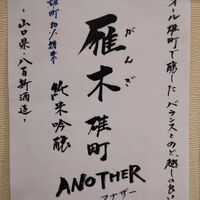 オール雄町で醸した
バランスとのど越しの良い
雁木
がんぎ
雄町
純米吟醸
ANOTHER
アナザー
～山口県・八百新酒造～